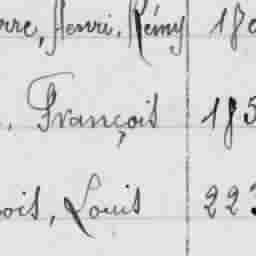 rre, Henri, Rémy 180
, François 185
ois, Louis 223